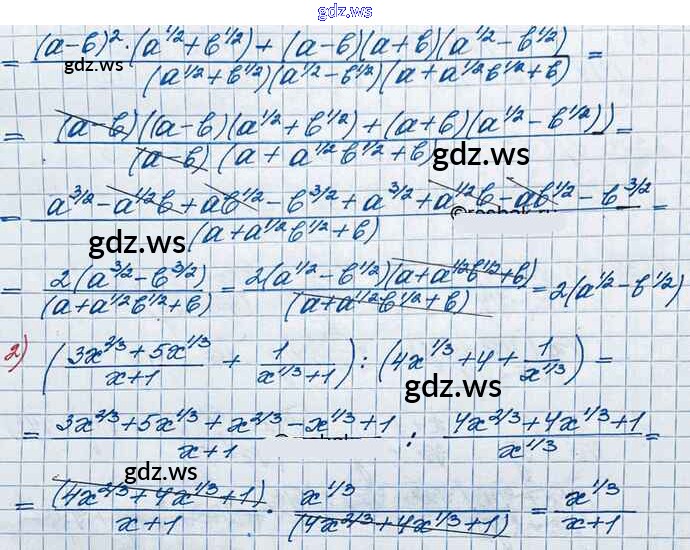 gdz.ws
= ((a-b)²·(a^{1/2}+b^{1/2})+(a-b)(a+b)(a^{1/2}-b^{1/2}))/((a^{1/2}+b^{1/2})(a^{1/2}-b^{1/2})(a+a^{1/2}b^{1/2}+b)) =
gdz.ws
= ((a-b)((a-b)(a^{1/2}+b^{1/2})+(a+b)(a^{1/2}-b^{1/2})))/((a-b)(a+a^{1/2}b^{1/2}+b)) =
gdz.ws
= (a^{3/2}-a^{1/2}b+ab^{1/2}-b^{3/2}+a^{3/2}+a^{1/2}b-ab^{1/2}-b^{3/2})/((a+a^{1/2}b^{1/2}+b)) =
gdz.ws
= (2(a^{3/2}-b^{3/2}))/((a+a^{1/2}b^{1/2}+b)) = (2(a^{1/2}-b^{1/2})(a+a^{1/2}b^{1/2}+b))/((a+a^{1/2}b^{1/2}+b)) = 2(a^{1/2}-b^{1/2})
2) ((3x^{2/3}+5x^{1/3})/(x+1) + 1/(x^{1/3}+1)) : (4x^{1/3}+4+1/x^{1/3}) =
gdz.ws
= (3x^{2/3}+5x^{1/3}+x^{2/3}-x^{1/3}+1)/(x+1) : (4x^{2/3}+4x^{1/3}+1)/x^{1/3} =
gdz.ws
= ((4x^{2/3}+4x^{1/3}+1))/(x+1) · x^{1/3}/((4x^{2/3}+4x^{1/3}+1)) = x^{1/3}/(x+1)